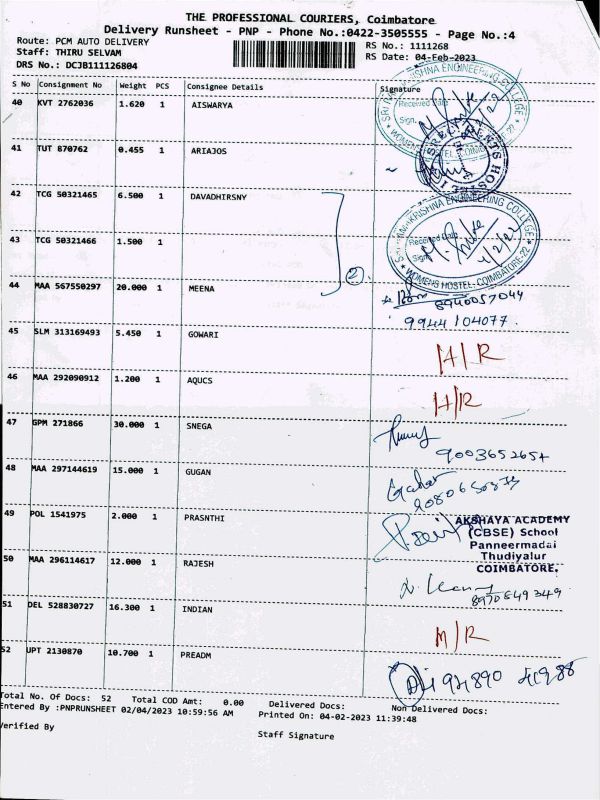 THE PROFESSIONAL COURIERS, Coimbatore
Delivery Runsheet - PNP - Phone No.:0422-3505555 - Page No.:4
Route: PCM AUTO DELIVERY
RS No.: 1111268
Staff: THIRU SELVAM
RS Date: 04-Feb-2023
DRS No.: DCJB111126804
S No Consignment No Weight PCS Consignee Details Signature
40 KVT 2762036 1.620 1 AISWARYA
SRI KRISHNA ENGINEERING COLLEGE
Received Date
Sign.
WOMENS HOSTEL
41 TUT 870762 0.455 1 ARIAJOS
42 TCG 50321465 6.500 1 DAVADHIRSNY
KRISHNA ENGINEERING COLLEGE
Received Date
Sign
WOMENS HOSTEL-COIMBATORE-22
43 TCG 50321466 1.500 1
2
44 MAA 567550297 20.000 1 MEENA
8940057044
9944104077
45 SLM 313169493 5.450 1 GOWARI
H/R
46 MAA 292090912 1.200 1 AQUCS
H/R
47 GPM 271866 30.000 1 SNEGA
48 MAA 297144619 15.000 1 GUGAN
49 POL 1541975 2.000 1 PRASNTHI
AKSHAYA ACADEMY
(CBSE) School
Panneermadai
Thudiyalur
COIMBATORE.
50 MAA 296114617 12.000 1 RAJESH
8970849349
51 DEL 528830727 16.300 1 INDIAN
M/R
52 UPT 2130870 10.700 1 PREADM
Total No. Of Docs: 52 Total COD Amt: 0.00 Delivered Docs: Non Delivered Docs:
Entered By :PNPRUNSHEET 02/04/2023 10:59:56 AM Printed On: 04-02-2023 11:39:48
Verified By
Staff Signature